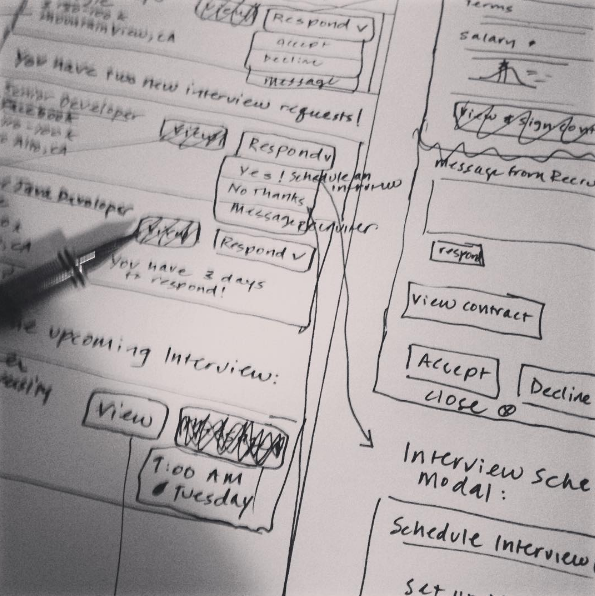 View
Respond v
Accept
Decline
Message
Mountain View, CA
You have two new interview requests!
Senior Developer
View
Respond v
Yes! Schedule an interview
No thanks
Message Recruiter
Java Developer
View
Respond v
You have 2 days
to respond!
upcoming Interview:
View
7:00 AM
Tuesday
Terms
Salary
View & Sign
Message from Recru
respond
View contract
Accept
Decline
close
Interview Sche
Modal:
Schedule Interview